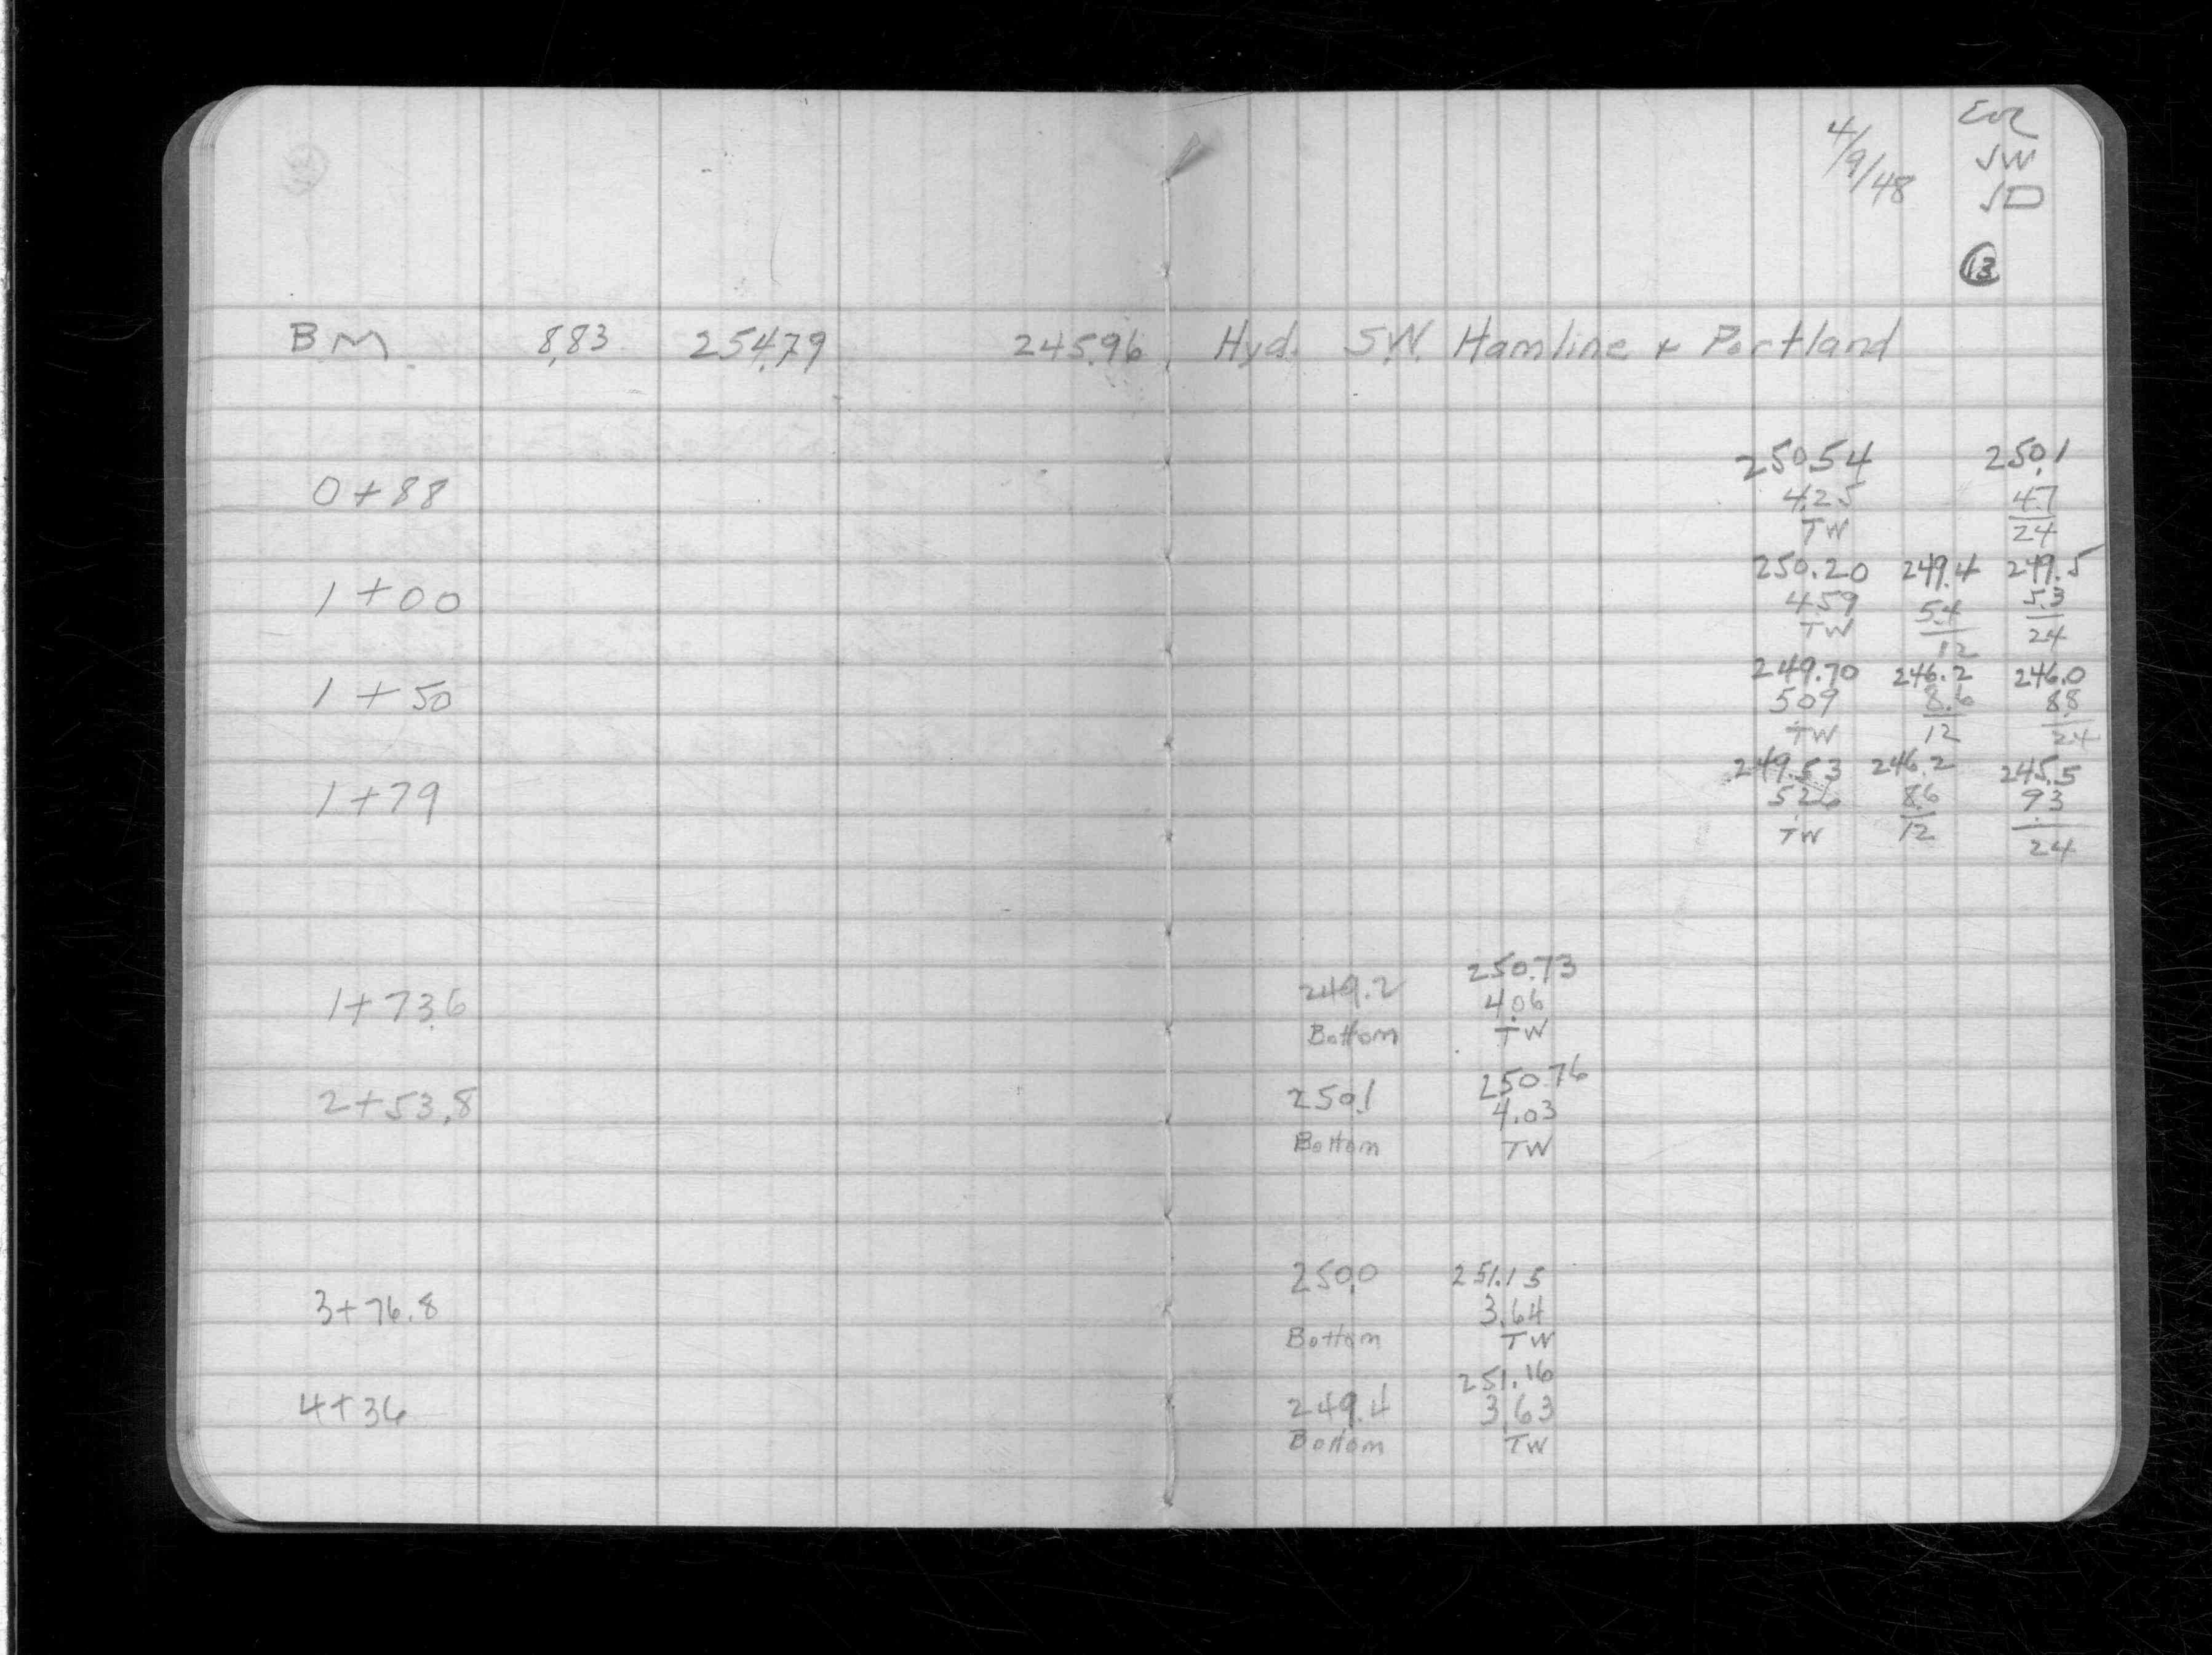 4/9/48
JW
JD
13
BM 8.83 254.79 245.96 Hyd. S.W. Hamline & Portland
250.54 250.1
0+88 4.25 4.7
TW 24
250.20 249.4 249.5
1+00 4.59 5.4 5.3
TW 12 24
249.70 246.2 246.0
1+50 5.09 8.6 8.8
TW 12 24
249.53 246.2 245.5
1+79 5.26 8.6 9.3
TW 12 24
250.73
1+73.6 249.2 4.06
Bottom TW
250.76
2+53.8 250.1 4.03
Bottom TW
250.0 251.15
3+76.8 3.64
Bottom TW
251.16
4+36 249.4 3.63
Bottom TW